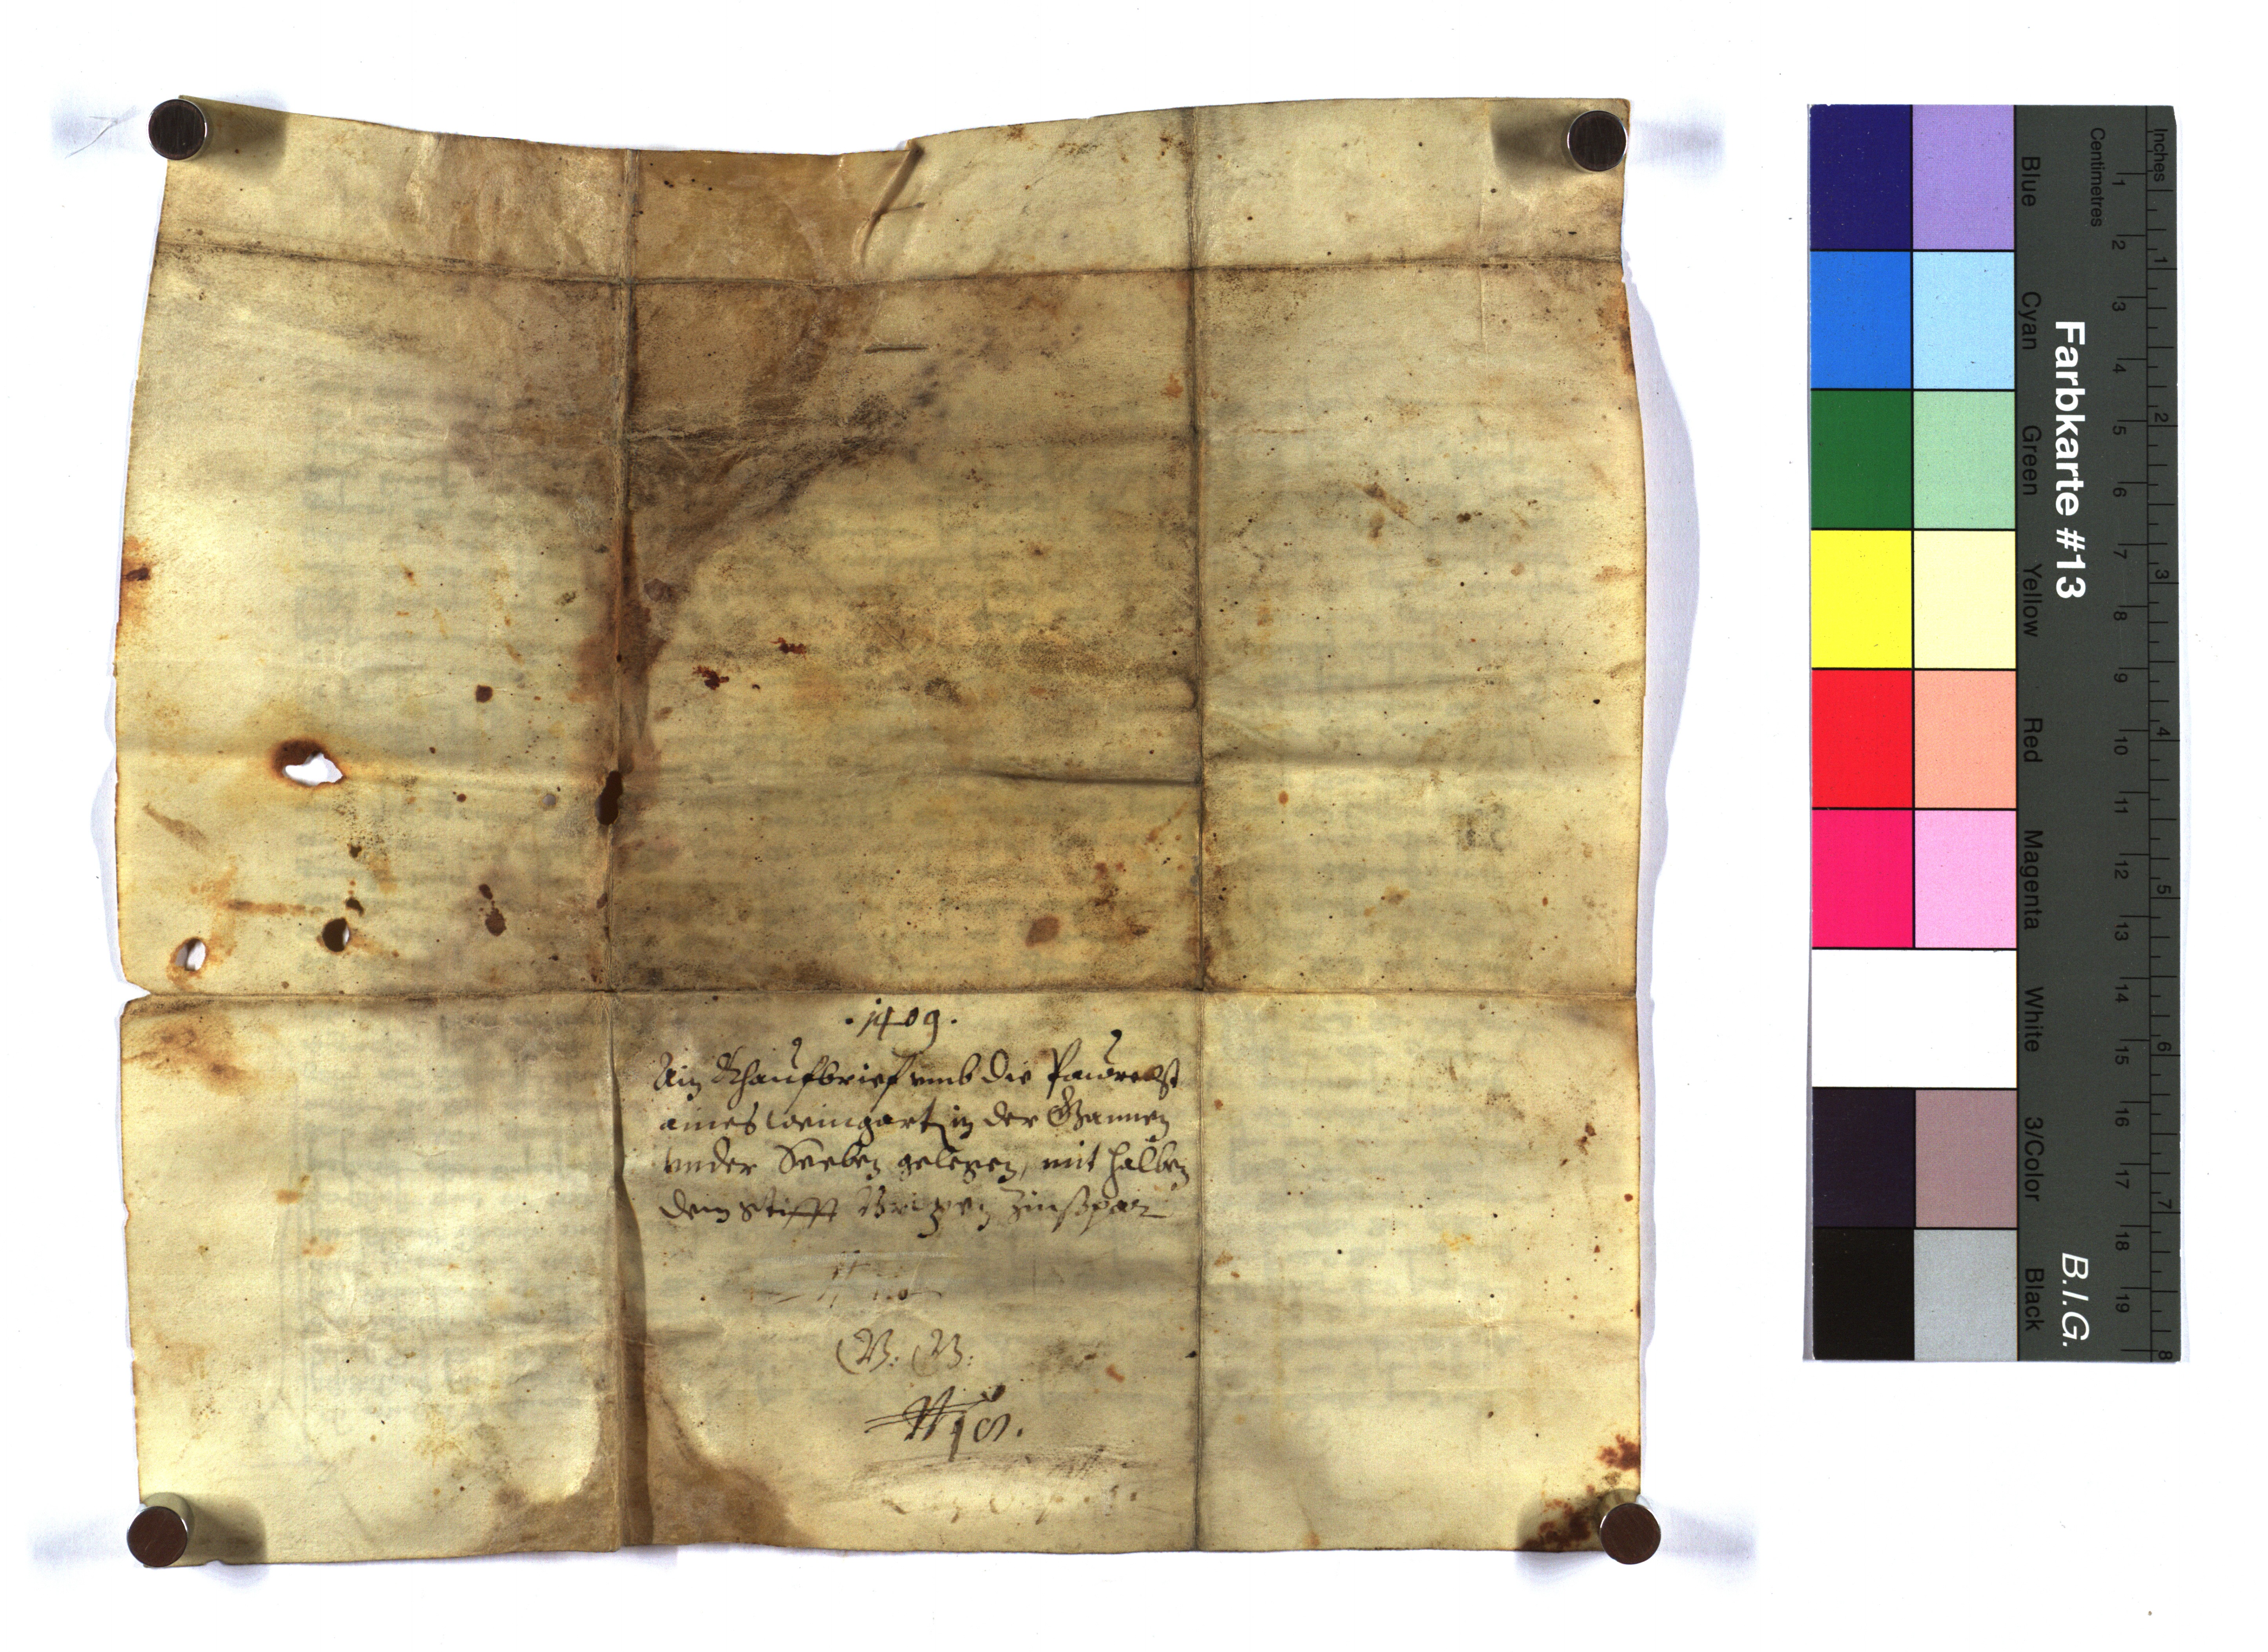 .1409.
Ain Khaufbrief vmb die Pawrecht
aines weingart in der Gannen
vnder Seeben gelegen, mit halben
dem Stifft Brixen Zinßpar
B: B:
Farbkarte #13
B.I.G.
Blue Cyan Green Yellow Red Magenta White 3/Color Black
Centimetres
1 2 3 4 5 6 7 8 9 10 11 12 13 14 15 16 17 18 19
Inches
1 2 3 4 5 6 7 8